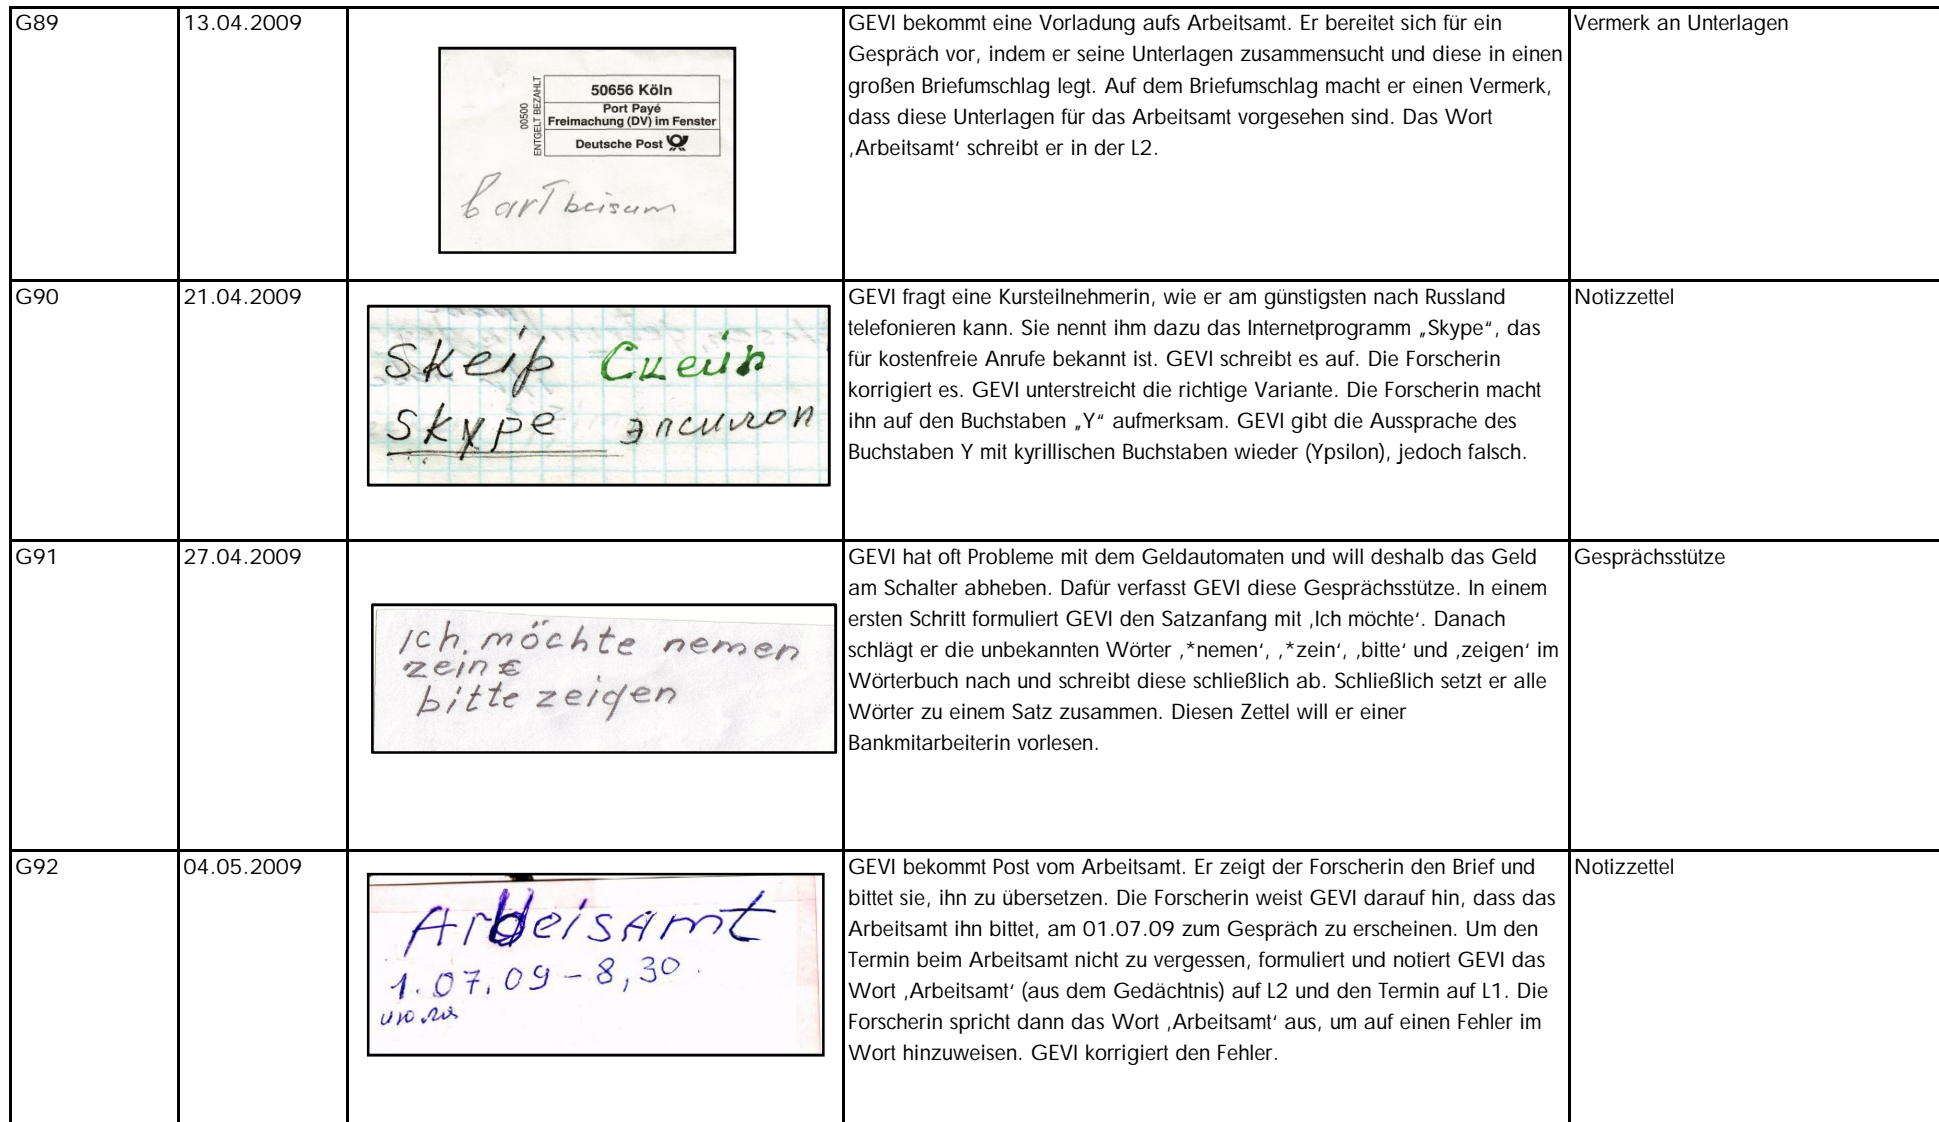 G89
13.04.2009
00500
ENTGELT BEZAHLT
50656 Köln
Port Payé
Freimachung (DV) im Fenster
Deutsche Post
в artbeisum
GEVI bekommt eine Vorladung aufs Arbeitsamt. Er bereitet sich für ein
Gespräch vor, indem er seine Unterlagen zusammensucht und diese in einen
großen Briefumschlag legt. Auf dem Briefumschlag macht er einen Vermerk,
dass diese Unterlagen für das Arbeitsamt vorgesehen sind. Das Wort
‚Arbeitsamt‘ schreibt er in der L2.
Vermerk an Unterlagen
G90
21.04.2009
Skeip Скейп
Skype эпсилон
GEVI fragt eine Kursteilnehmerin, wie er am günstigsten nach Russland
telefonieren kann. Sie nennt ihm dazu das Internetprogramm „Skype“, das
für kostenfreie Anrufe bekannt ist. GEVI schreibt es auf. Die Forscherin
korrigiert es. GEVI unterstreicht die richtige Variante. Die Forscherin macht
ihn auf den Buchstaben „Y“ aufmerksam. GEVI gibt die Aussprache des
Buchstaben Y mit kyrillischen Buchstaben wieder (Ypsilon), jedoch falsch.
Notizzettel
G91
27.04.2009
Ich möchte nemen
zein €
bitte zeigen
GEVI hat oft Probleme mit dem Geldautomaten und will deshalb das Geld
am Schalter abheben. Dafür verfasst GEVI diese Gesprächsstütze. In einem
ersten Schritt formuliert GEVI den Satzanfang mit ‚Ich möchte‘. Danach
schlägt er die unbekannten Wörter ‚*nemen‘, ‚*zein‘, ‚bitte‘ und ‚zeigen‘ im
Wörterbuch nach und schreibt diese schließlich ab. Schließlich setzt er alle
Wörter zu einem Satz zusammen. Diesen Zettel will er einer
Bankmitarbeiterin vorlesen.
Gesprächsstütze
G92
04.05.2009
Arbeisamt
1.07.09 – 8,30.
июля
GEVI bekommt Post vom Arbeitsamt. Er zeigt der Forscherin den Brief und
bittet sie, ihn zu übersetzen. Die Forscherin weist GEVI darauf hin, dass das
Arbeitsamt ihn bittet, am 01.07.09 zum Gespräch zu erscheinen. Um den
Termin beim Arbeitsamt nicht zu vergessen, formuliert und notiert GEVI das
Wort ‚Arbeitsamt‘ (aus dem Gedächtnis) auf L2 und den Termin auf L1. Die
Forscherin spricht dann das Wort ‚Arbeitsamt‘ aus, um auf einen Fehler im
Wort hinzuweisen. GEVI korrigiert den Fehler.
Notizzettel